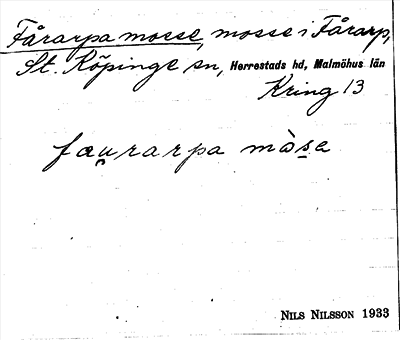 Fårarpa mosse, mosse i Fårarp,
St. Köpinge sn, Herrestads hd, Malmöhus län
Kring 13
fæu̯rarpa mòsa
NILS NILSSON 1933